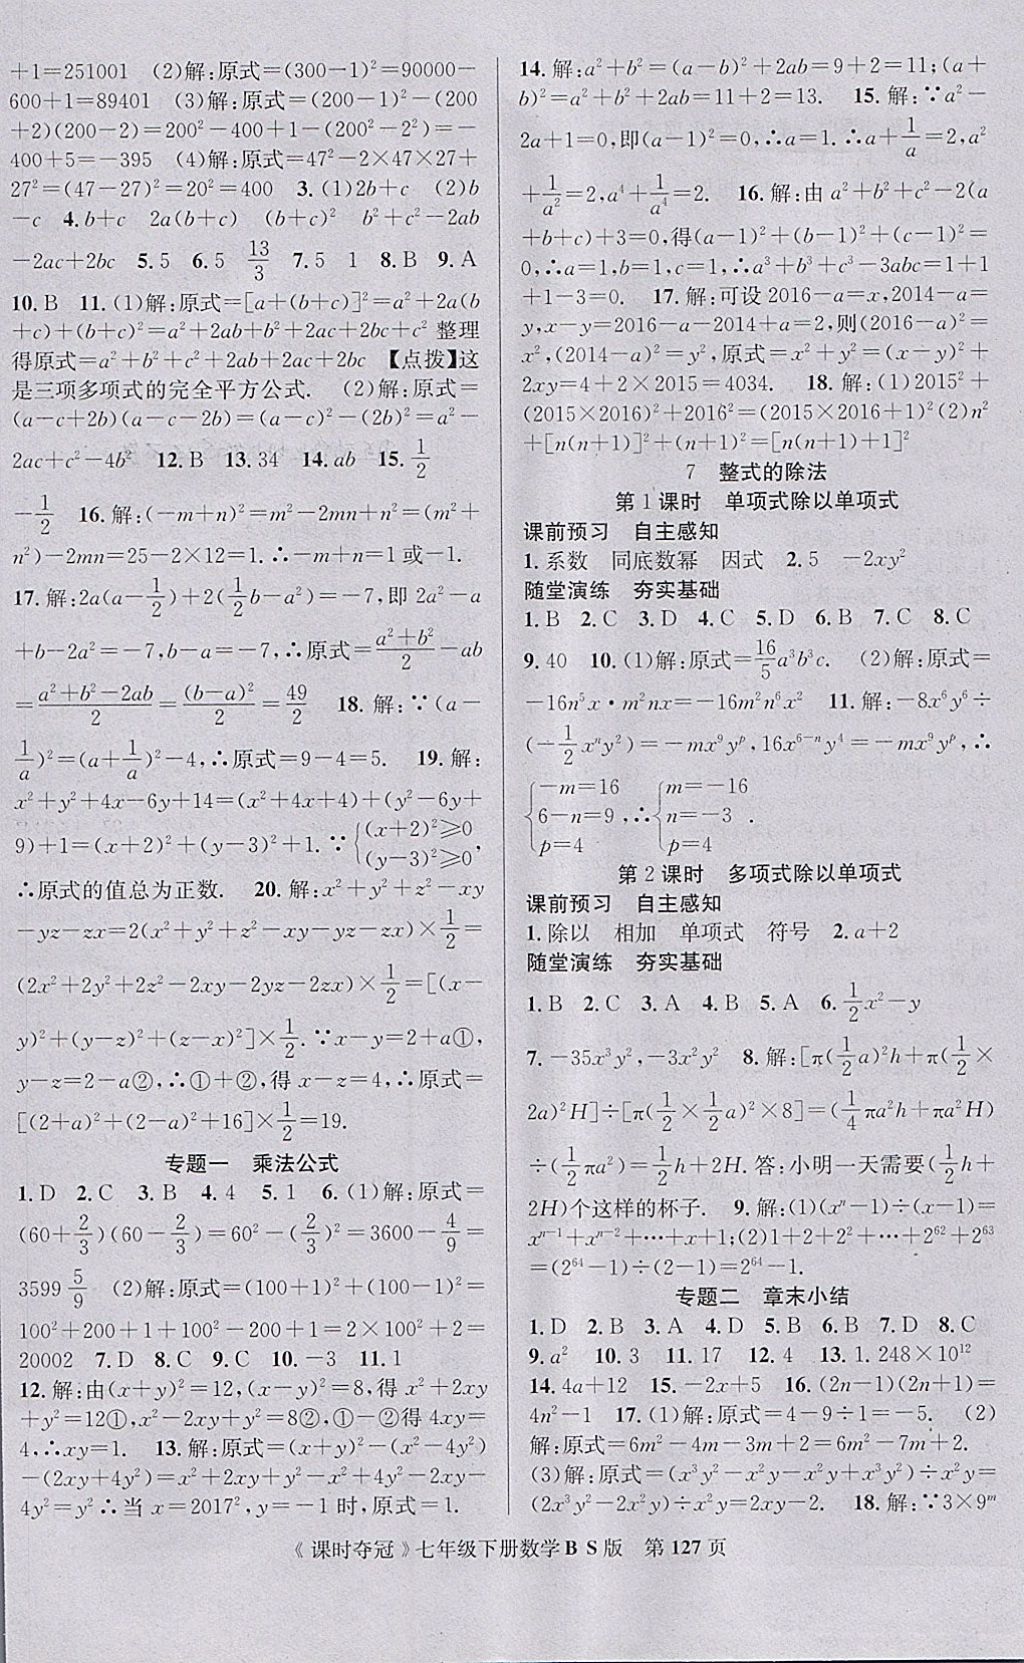 +1=251001　(2)解:原式=(300-1)²=90000-
600+1=89401　(3)解:原式=(200-1)²-(200
+2)(200-2)=200²-400+1-(200²-2²)=-
400+5=-395　(4)解:原式=47²-2×47×27+
27²=(47-27)²=20²=400　3.(1)2b+c　(2)b
-c　4.b+c　2a(b+c)　(b+c)²　b²+c²-2ab
-2ac+2bc　5.5　6.5　13/3　7.5　1　8.B　9.A
10.B　11.(1)解:原式=[a+(b+c)]²=a²+2a(b
+c)+(b+c)²=a²+2ab+b²+2ac+2bc+c² 整理
得原式=a²+b²+c²+2ab+2ac+2bc　【点拨】这
是三项多项式的完全平方公式.　(2)解:原式=
(a-c+2b)(a-c-2b)=(a-c)²-(2b)²=a²-
2ac+c²-4b²　12.B　13.34　14.ab　15.1/2
-1/2　16.解:(-m+n)²=m²-2mn+n²=(m²+
n²)-2mn=25-2×12=1.∴-m+n=1或-1.
17.解:2a(a-1/2)+2(1/2b-a²)=-7,即 2a²-a
+b-2a²=-7,b-a=-7,∴原式=(a²+b²)/2-ab
=(a²+b²-2ab)/2=(b-a)²/2=49/2　18.解:∵(a-
1/a)²=(a+1/a)²-4,∴原式=9-4=5.　19.解:
x²+y²+4x-6y+14=(x²+4x+4)+(y²-6y+
9)+1=(x+2)²+(y-3)²+1.∵{(x+2)²≥0 (y-3)²≥0,
∴原式的值总为正数.　20.解:x²+y²+z²-xy
-yz-zx=2(x²+y²+z²-xy-yz-zx)×1/2=
(2x²+2y²+2z²-2xy-2yz-2zx)×1/2=[(x-
y)²+(y-z)²+(z-x)²]×1/2.∵x-y=2+a①,
y-z=2-a②,∴①+②,得 x-z=4,∴原式=
[(2+a)²+(2-a)²+16]×1/2=19.
专题一　乘法公式
1.D　2.C　3.B　4.4　5.1　6.(1)解:原式=
(60+2/3)(60-2/3)=60²-(2/3)²=3600-4/9=
3599 5/9　(2)解:原式=(100+1)²+(100-1)²=
100²+200+1+100²-200+1=2×100²+2=
20002　7.D　8.C　9.C　10.-3　11.1
12.解:由(x+y)²=12,(x-y)²=8,得 x²+2xy
+y²=12①,x²-2xy+y²=8②,①-②得 4xy=
4,∴xy=1.　13.解:原式=(x²-y²)-(x²-4y²)
-(2xy+4y²)=x²+2xy+y²-x²+4y²-2xy-
4y²=y² ∴当 x=2017²,y=-1 时,原式=1.
14.解:a²+b²=(a-b)²+2ab=9+2=11;(a+
b)²=a²+b²+2ab=11+2=13.　15.解:∵a²-
2a+1=0,即(a-1)²=0,∴a=1.∴a+1/a=2,a²
+1/a²=2,a⁴+1/a⁴=2.　16.解:由 a²+b²+c²-2(a
+b+c)+3=0,得(a-1)²+(b-1)²+(c-1)²=
0,∴a=1,b=1,c=1,∴a³+b³+c³-3abc=1+1
+1-3=0.　17.解:可设 2016-a=x,2014-a=
y,x-y=2016-a-2014+a=2,则(2016-a)²=
x²,(2014-a)²=y²,原式=x²+y²=(x-y)²+
2xy=4+2×2015=4034.　18.解:(1)2015²+
(2015×2016)²+2016²=(2015×2016+1)²(2)n²
+[n(n+1)]²+(n+1)²=[n(n+1)+1]²
7　整式的除法
第1课时　单项式除以单项式
课前预习　自主感知
1.系数　同底数幂　因式　2.5　-2xy²
随堂演练　夯实基础
1.B　2.C　3.D　4.C　5.D　6.B　7.C　8.C
9.40　10.(1)解:原式=16/5a³b³c.　(2)解:原式=
-16n⁵x·m²nx=-16m²n⁶x²　11.解:-8x⁶y⁶÷
(-1/2xⁿy²)=-mx⁹yᵖ,16x⁶⁻ⁿy⁴=-mx⁹yᵖ,∴
{-m=16 {m=-16
6-n=9,∴ n=-3 .
p=4 p=4
第2课时　多项式除以单项式
课前预习　自主感知
1.除以　相加　单项式　符号　2.a+2
随堂演练　夯实基础
1.B　2.C　3.A　4.B　5.A　6.1/2x²-y
7.-35x³y²,-3x²y²　8.解:[π(1/2a)²h+π(1/2×
2a)²H]÷[π(1/2×1/2a)²×8]=(1/4πa²h+πa²H)
÷(1/2πa²)=1/2h+2H.答:小明一天需要(1/2h+
2H)个这样的杯子.　9.解:(1)(xⁿ-1)÷(x-1)=
xⁿ⁻¹+xⁿ⁻²+…+x+1;(2)1+2+2²+…+2⁶²+2⁶³
=(2⁶⁴-1)÷(2-1)=2⁶⁴-1.
专题二　章末小结
1.D　2.B　3.A　4.C　5.B　6.D　7.D　8.C
9.a²　10.3　11.17　12.4　13.1.248×10¹²
14.4a+12　15.-2x+5　16.(2n-1)(2n+1)=
4n²-1　17.(1)解:原式=4-9÷1=-5.　(2)
解:原式=6m²-4m-3m+2=6m²-7m+2.
(3)解:原式=(x³y²-x²y-x²y+x³y²)÷x²y=
(2x³y²-2x²y)÷x²y=2xy-2.　18.解:∵3×9ᵐ
《课时夺冠》七年级下册数学B S版　第127页